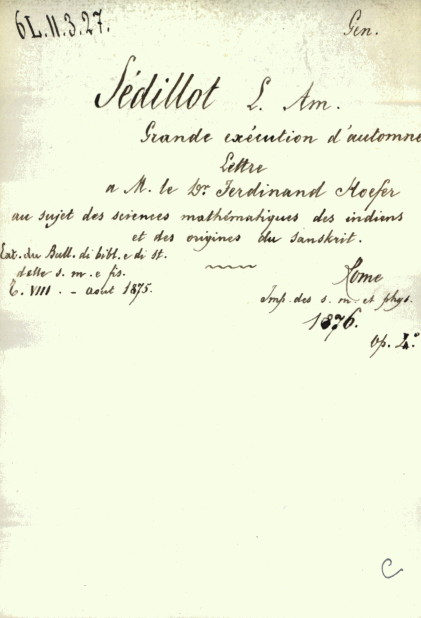 6L.11.3.27.
Gen.
Sédillot L. Am.
Grande exécution d'automne
Lettre
a M. le Dr Ferdinand Hoefer
au sujet des sciences mathématiques des indiens
et des origines du sanskrit.
Ext. du Bull. di bibl. e di st.
delle s. m. e fis.
t. VIII. - aout 1875.
Rome
Imp. des s. m. et phys.
1876.
Op. 4°
C